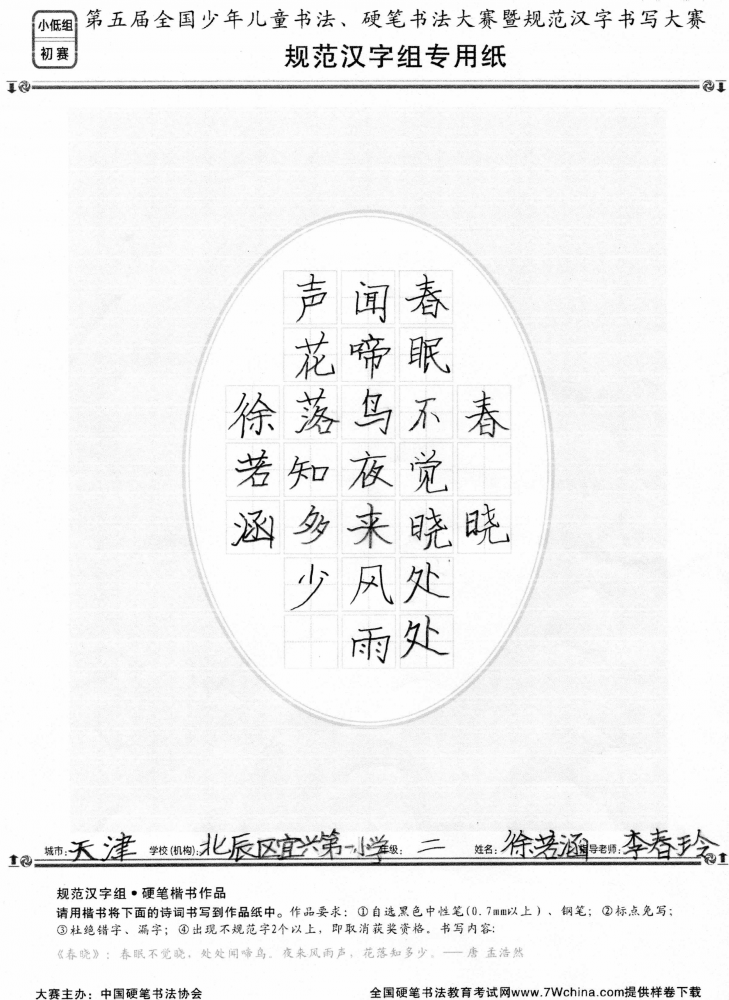 小低组
初赛
第五届全国少年儿童书法、硬笔书法大赛暨规范汉字书写大赛
规范汉字组专用纸
春晓
春眠不觉晓处处
闻啼鸟夜来风雨
声花落知多少
徐若涵
城市：天津 学校(机构)：北辰区宜兴第一小学 年级：二 姓名：徐若涵 指导老师：李春玲
规范汉字组•硬笔楷书作品
请用楷书将下面的诗词书写到作品纸中。作品要求：①自选黑色中性笔(0.7mm以上)、钢笔；②标点免写；
③杜绝错字、漏字；④出现不规范字2个以上，即取消获奖资格。书写内容：
《春晓》：春眠不觉晓，处处闻啼鸟。夜来风雨声，花落知多少。——唐 孟浩然
大赛主办：中国硬笔书法协会 全国硬笔书法教育考试网www.7Wchina.com提供样卷下载